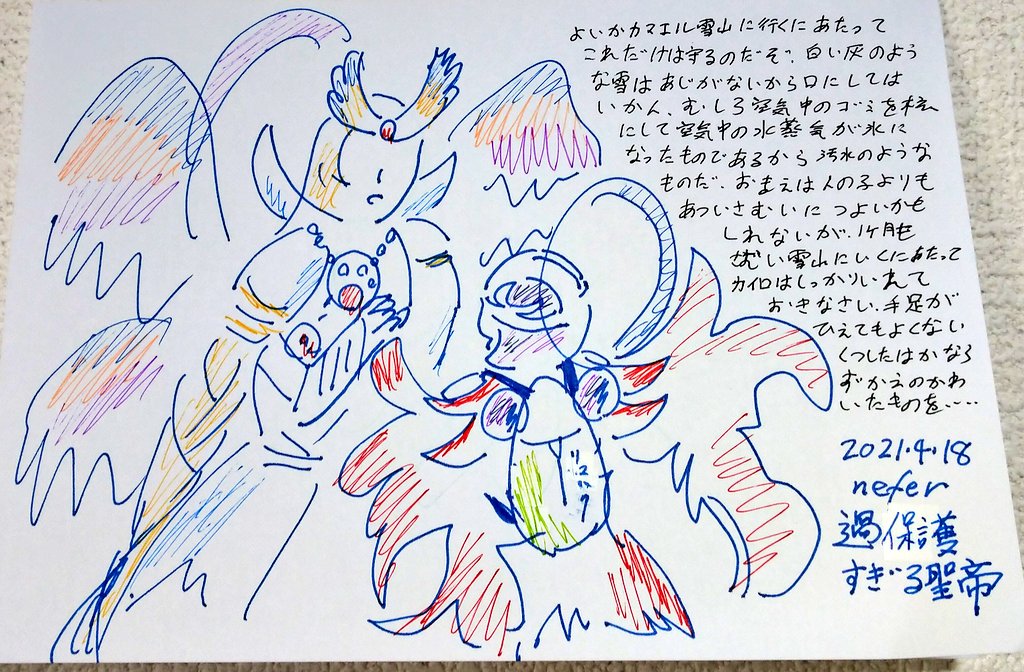 よいかカマエル雪山に行くにあたって
これだけは守るのだぞ、白い灰のよう
な雪はあじがないから口にしては
いかん、むしろ空気中のゴミを核
にして空気中の水蒸気が氷に
なったものであるから汚水のような
ものだ、おまえは人の子よりも
あついさむいにつよいかも
しれないが、1ヶ月も
雪山にいくにあたって
カイロはしっかりいれて
おきなさい、手足が
ひえてもよくない
くつしたはかなら
ずかえのかわ
いたものを、…
2021.4.18
nefer
過保護
すぎる聖帝
リュック